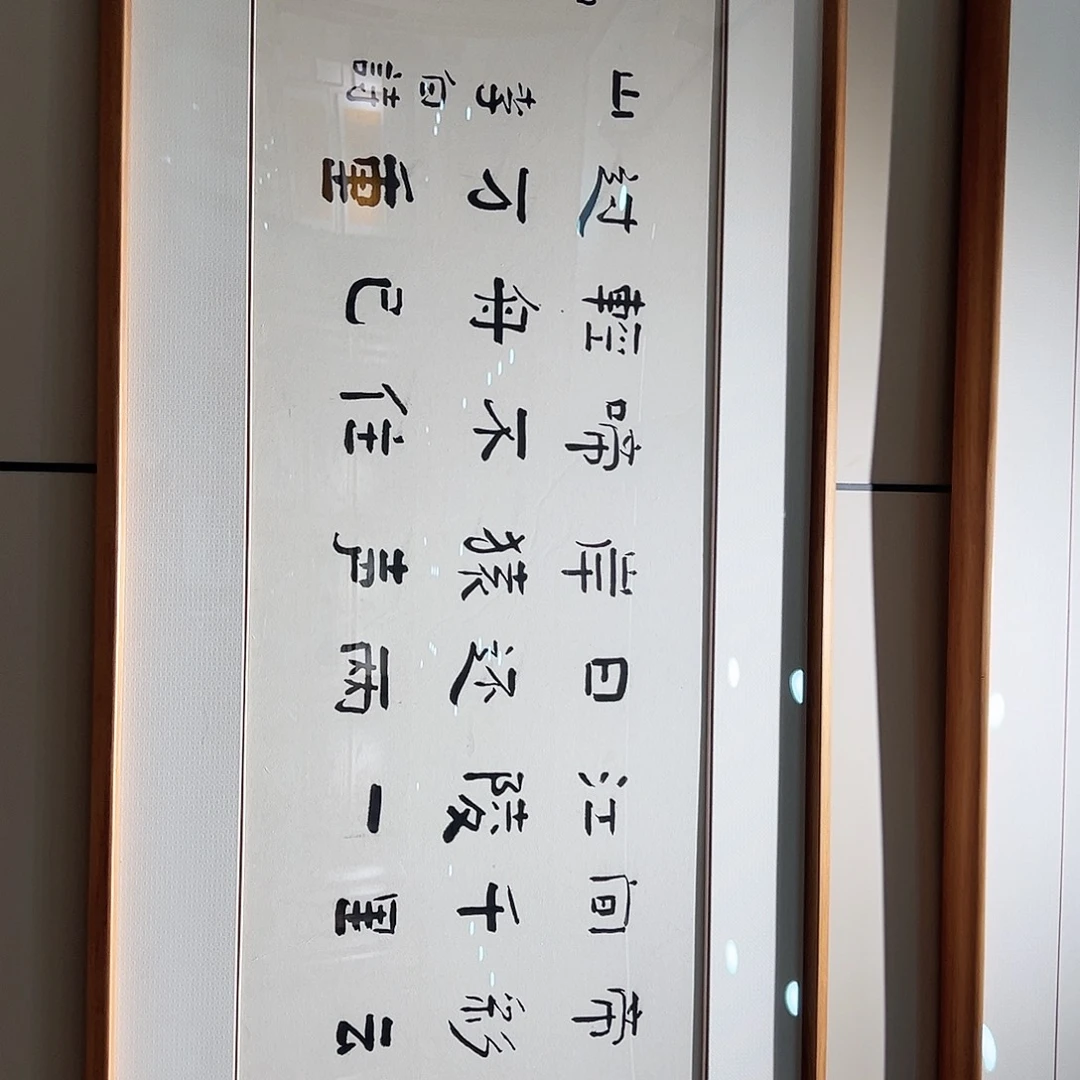 帝彩云
间千里
江陵一
日还兩
岸猿声
啼不住
輕舟已
过万重
山李白詩